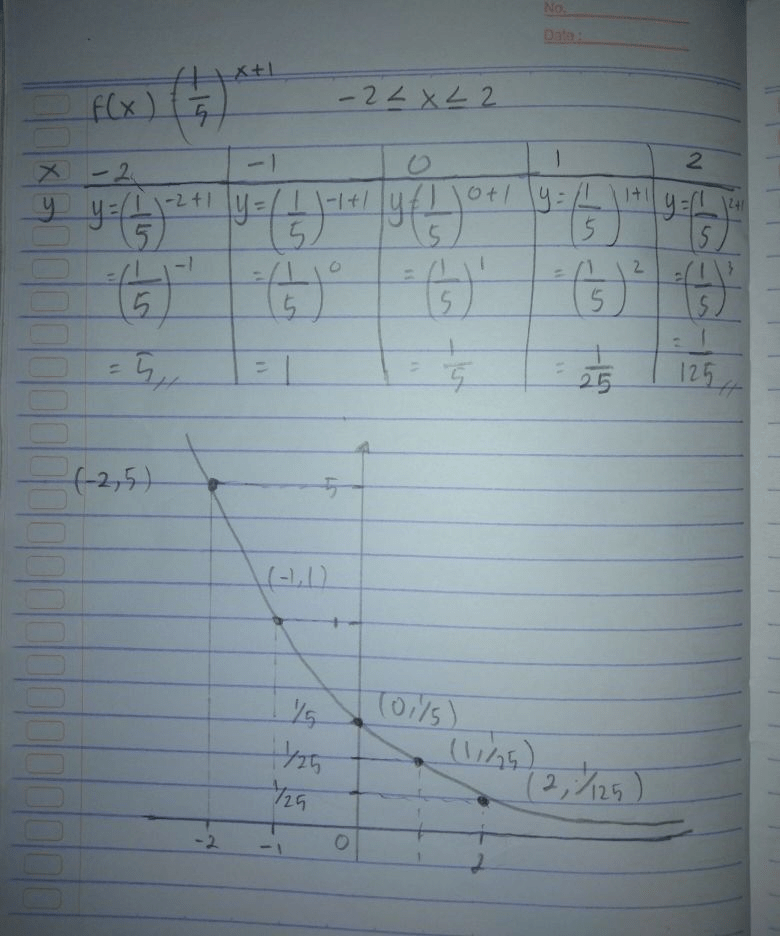 No.
Date:
f(x) (1/5)^x+1 -2 ≤ x ≤ 2
x -2 -1 0 1 2
y y=(1/5)^-2+1 y=(1/5)^-1+1 y=(1/5)^0+1 y=(1/5)^1+1 y=(1/5)^2+1
=(1/5)^-1 =(1/5)^0 =(1/5)^1 =(1/5)^2 =(1/5)^3
= 5,, = 1 = 1/5 = 1/25 = 1/125,,
(-2,5) 5
(-1,1)
1
1/5 (0,1/5)
1/25 (1,1/25)
1/25 (2,1/125)
-2 -1 0 1 2